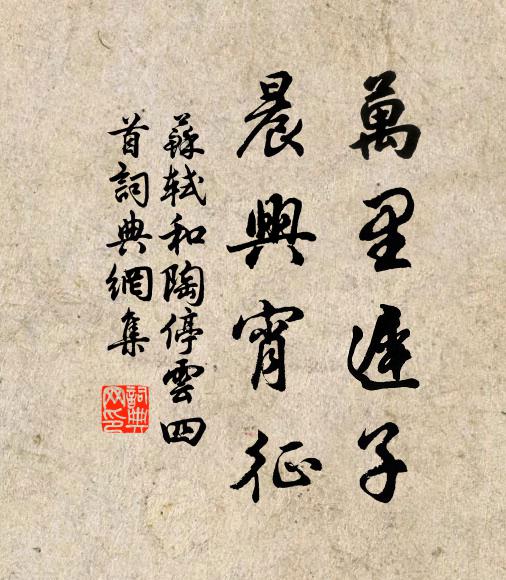 萬里遲子
晨興宵征
蘇軾和陶停雲四
首詞典網集
詞典
网印